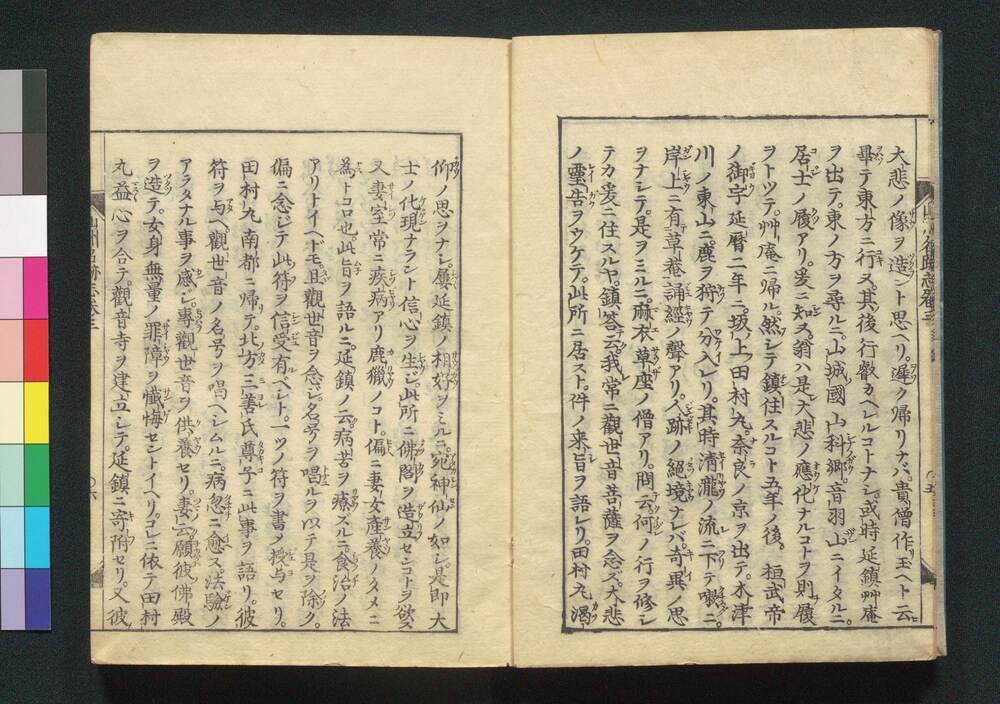 大悲ノ像ヲ造ント思ヘリ。遅ク帰リナバ。貴僧作玉ヘト云
畢テ東方ニ行ヌ。其後行叡カヘルコトナシ。或時延鎮艸庵
ヲ出テ。東ノ方ヲ尋ルニ。山城國山科郷。音羽山ニイタルニ。
居士ノ履アリ。爰ニ知ヌ。翁ハ是大悲ノ應化ナルコトヲ則履
ヲトツテ。艸庵ニ帰ル。然シテ鎮住スルコト五年ノ後。桓武帝
ノ御宇延暦二年ニ。坂上田村丸。奈良ノ京ヲ出テ。木津
川ノ東山ニ。鹿ヲ狩テ分入レリ。其時清瀧ノ流ニ下テ
岸上ニ有草菴誦經ノ聲アリ。人跡ノ絶境ナレバ。奇異ノ思
ヲナシテ。是ヲミルニ。麻衣草座ノ僧アリ。問云何ノ行ヲ修シ
テカ爰ニ住スルヤ。鎮答云。我常ニ觀世音菩薩ヲ念ズ。大悲
ノ靈告ヲウケテ。此所ニ居スト。件ノ来旨ヲ語レリ。田村丸渇
仰ノ思ヲナシ。屢延鎮ノ相好ヲミルニ。宛神仙ノ如シ。是即大
士ノ化現ナラント信心ヲ生ジ。此所ニ佛閣ヲ造立センコトヲ欲ス
又妻室常ニ疾病アリ鹿獵ノコト。偏ニ妻女産養ノタメニ
為トコロ也。此旨ヲ語ルニ。延鎮ノ云。病苦ヲ療ズルニ。食治ノ法
アリトイヘドモ。且觀世音ヲ念ジ。名号ヲ唱ルヲ以テ是ヲ除ク。
偏ニ念ジテ此符ヲ信受有ベシト。一ツノ符ヲ書メ授与セリ。
田村丸南都ニ帰テ。北方三善氏尊子ニ此事ヲ語リ。彼
符ヲ与ヘ。觀世音ノ名号ヲ唱ヘシムルニ。病忽ニ愈ス。法驗ノ
アラタナル事ヲ感ジ。專觀世音ヲ供養セリ。妻云願彼佛殿
ヲ造テ。女身無量ノ罪障ヲ懺悔セントイヘリ。コレニ依テ田村
丸益心ヲ合テ。觀音寺ヲ建立シテ。延鎮ニ寄附セリ。又彼